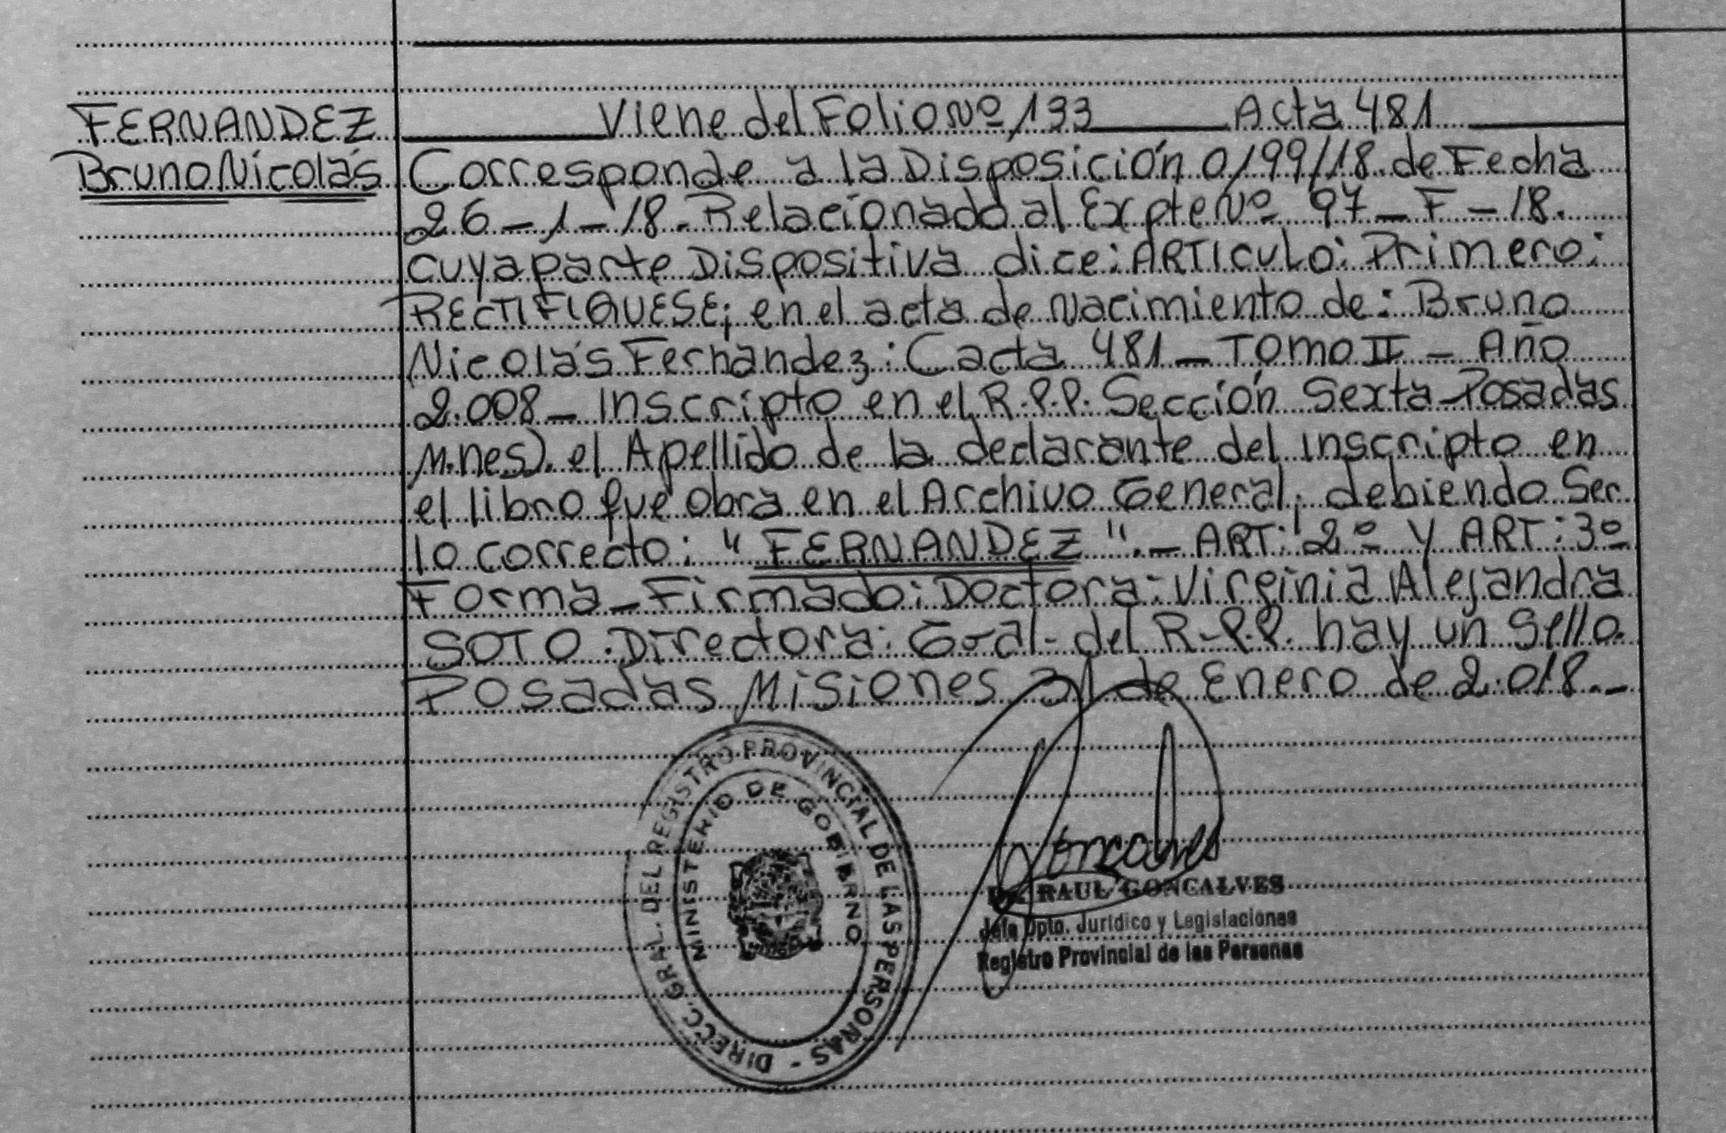 FERNANDEZ
Bruno Nicolás
Viene del Folio Nº 133 Acta 481
Corresponde a la Disposición 0199/18. de Fecha
26-1-18. Relacionado al Expte Nº 97-F-18.
cuya parte Dispositiva dice: ARTICULO: Primero:
RECTIFIQUESE; en el acta de Nacimiento de: Bruno
Nicolás Fernández: (acta 481- TOMO II - Año
2.008- Inscripto en el R.P.P. Sección Sexta Posadas
M.nes). el Apellido de la declarante del inscripto en
el libro que obra en el Archivo General, debiendo Ser
lo correcto: "FERNANDEZ".- ART: 2º Y ART: 3º
Forma-Firmado: Doctora: Virginia Alejandra
SOTO. Directora: Gral. del R.P.P. hay un Sello.
Posadas Misiones 31 de Enero de 2.018.-
DIRECC. GRAL. DEL REGISTRO PROVINCIAL DE LAS PERSONAS -
MINISTERIO DE GOBIERNO
Goncalves
RAUL GONCALVES
Jefe Dpto. Jurídico y Legislaciones
Registro Provincial de las Personas